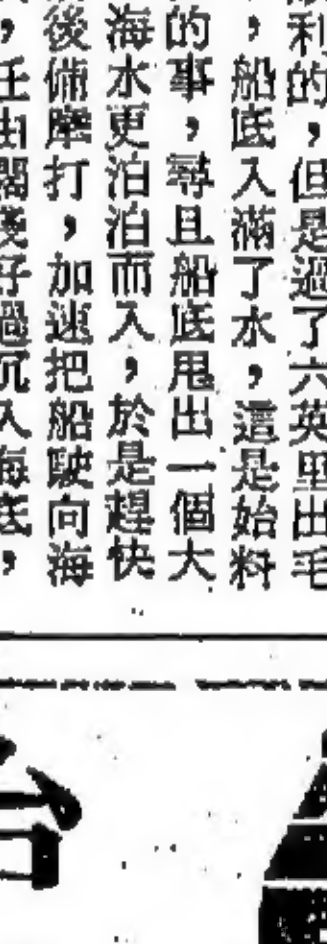 利的，但是過了六英里出毛
，船底入滿了水，這是始料
的事，尋且船底甩出一個大
海水更泊泊而入，於是趕快
後備摩打，加速把船駛向海
，任由擱淺好過沉入海底，
台